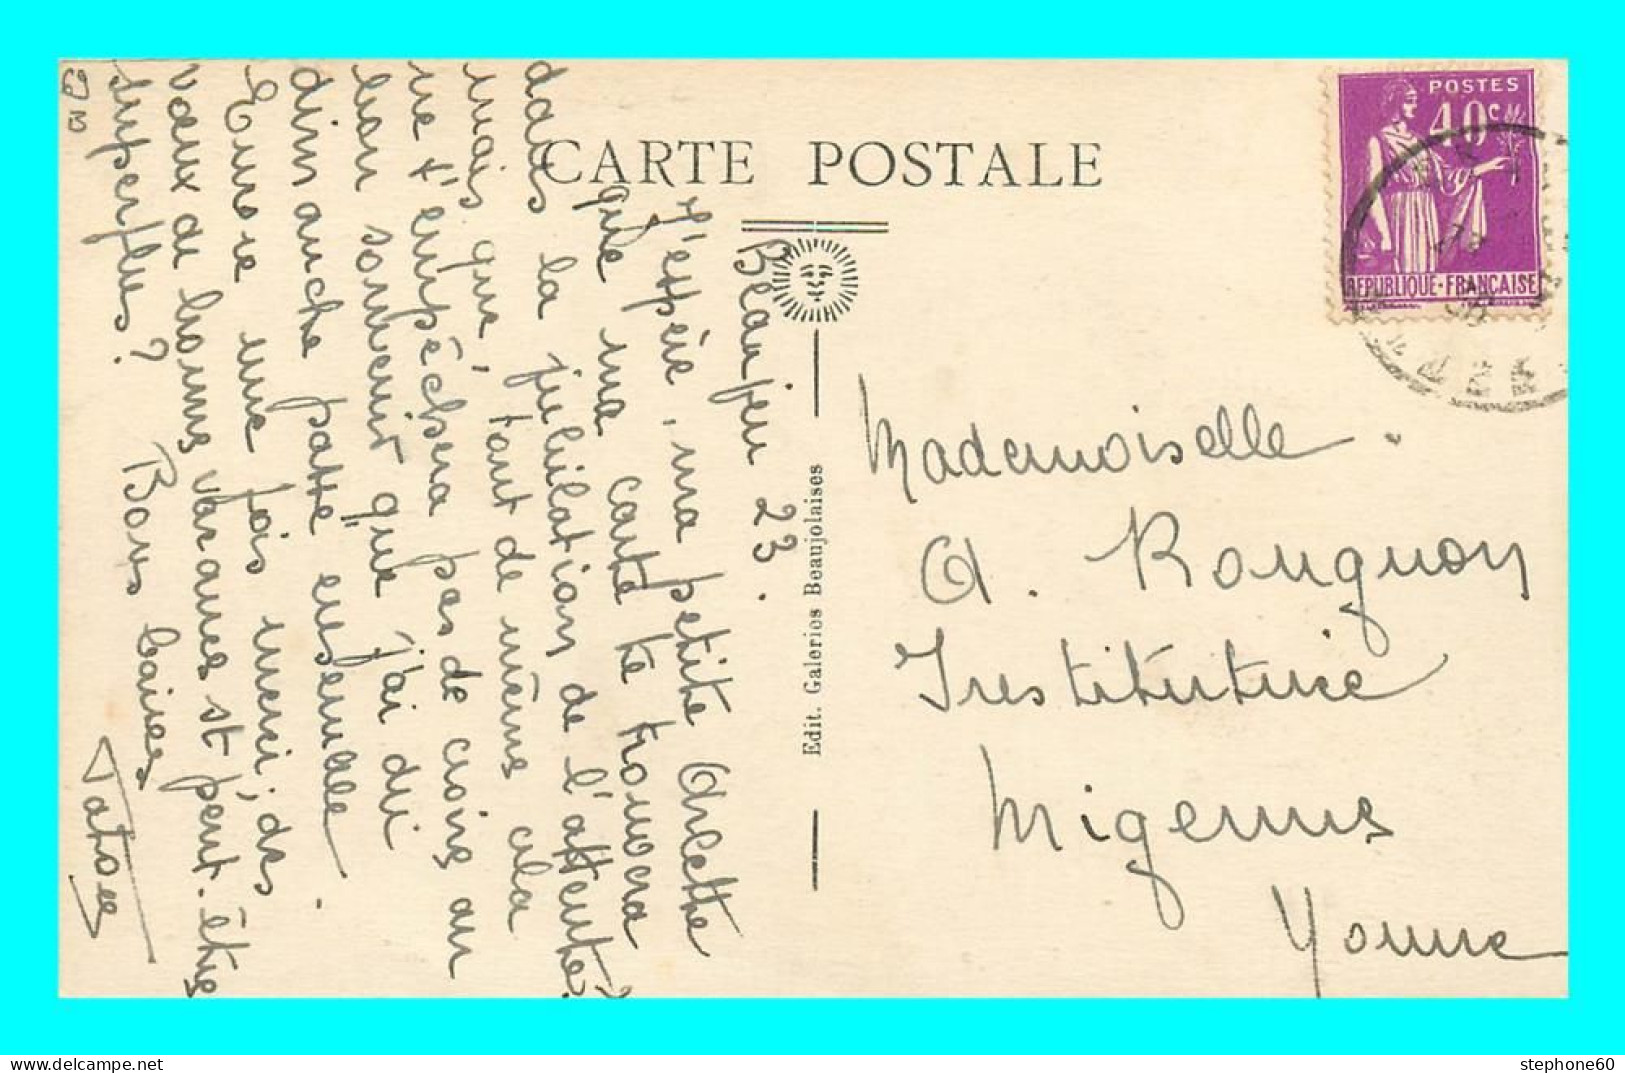 CARTE POSTALE
POSTES
40c
REPUBLIQUE-FRANÇAISE
Edit. Galeries Beaujolaises
Beaujeu 23.
J'espère, ma petite Arlette
que ma carte te trouvera
dans la jubilation de l'attente,
mais que, tout de même cela
ne t'empêchera pas de croire au
bon souvenir que j'ai du
dimanche passé ensemble.
Encore une fois merci; des
vœux de bonnes vacances st peut-être
superflus? Bons baisers
Mademoiselle
A. Rougnon
Institutrice
Migennes
Yonne
stephone60